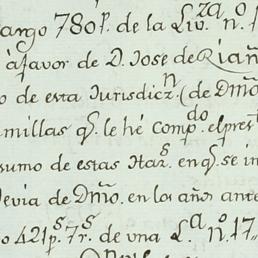 argo 780p.ˢ de la Liv.ᶻᵃ n.º
à favor de D. Jose de Riañ
o de esta Jurisdicz.ⁿ (de Dm̃o
millas q.ᵉ le hé comp.ᵈᵒ el pres
sumo de estas Haz.ˢ en q.ᵉ se in
Devia de Dm̃o. en los año ante
o 421p.ˢ 7r.ˢ de una L.ᵃ N.º 17